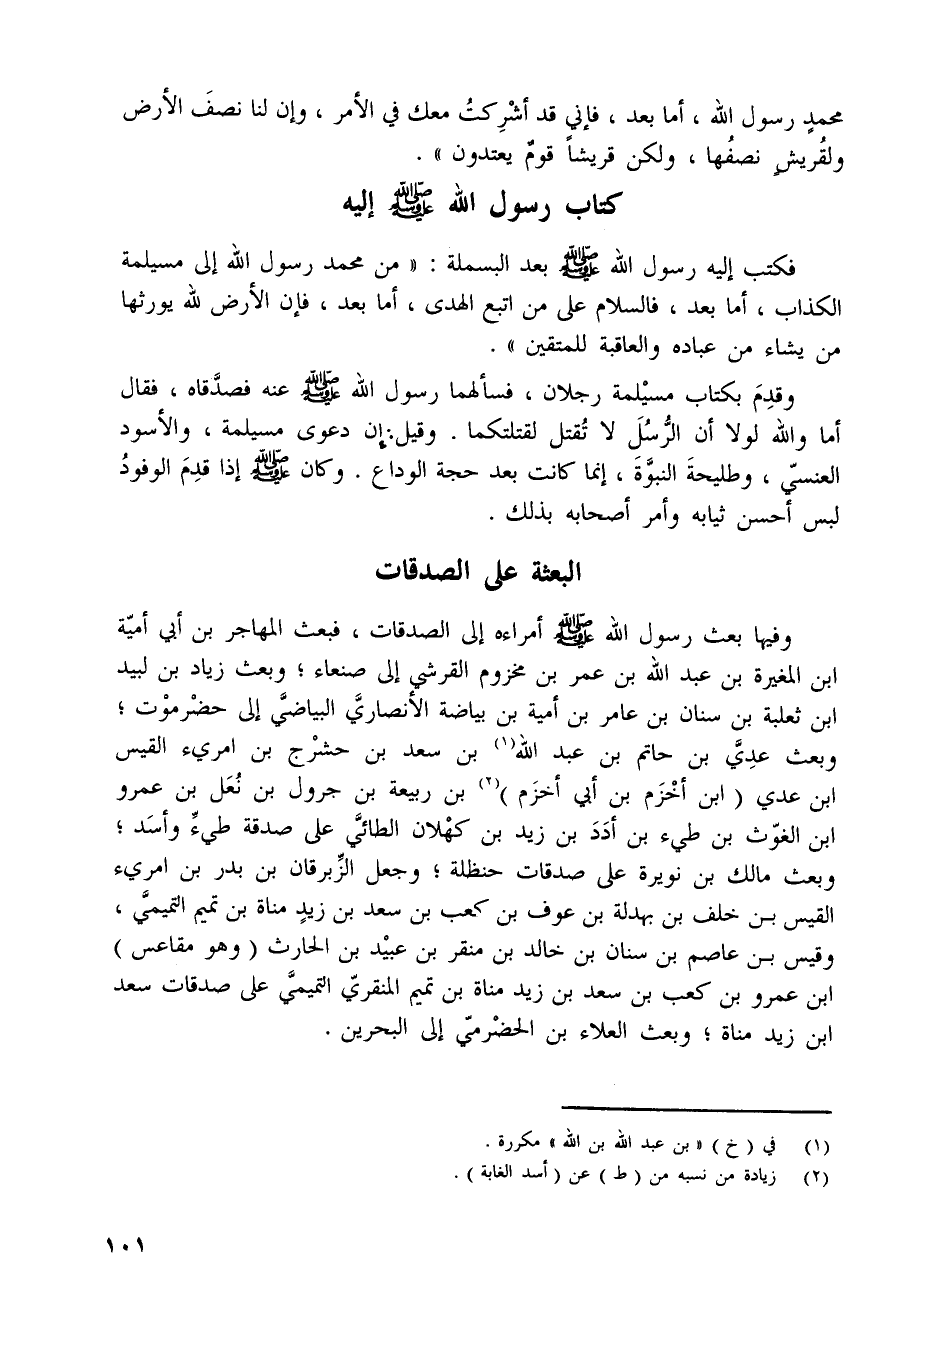 محمدٍ رسول الله ، أما بعد ، فإني قد أشْرِكتُ معك في الأمر ، وإن لنا نصفَ الأرض
ولقُريشٍ نصفُها ، ولكن قريشاً قومٌ يعتدون » .
كتاب رسول الله ﷺ إليه
فكتب إليه رسول الله ﷺ بعد البسملة : « من محمد رسول الله إلى مسيلمة
الكذاب ، أما بعد ، فالسلام على من اتبع الهدى ، أما بعد ، فإن الأرض لله يورثها
من يشاء من عباده والعاقبة للمتقين » .
وقدِمَ بكتاب مسيْلمة رجلان ، فسألهما رسول الله ﷺ عنه فصدَّقاه ، فقال
أما والله لولا أن الرُّسُلَ لا تُقتل لقتلتكما . وقيل: إن دعوى مسيلمة ، والأسود
العنسيّ ، وطليحةَ النبوَّةَ ، إنما كانت بعد حجة الوداع . وكان ﷺ إذا قدِمَ الوفودُ
لبس أحسن ثيابه وأمر أصحابه بذلك .
البعثة على الصدقات
وفيها بعث رسول الله ﷺ أمراءه إلى الصدقات ، فبعث المهاجر بن أبي أميّة
ابن المغيرة بن عبد الله بن عمر بن مخزوم القرشي إلى صنعاء ؛ وبعث زياد بن لبيد
ابن ثعلبة بن سنان بن عامر بن أمية بن بياضة الأنصاريَّ البياضيَّ إلى حضْرموْت ؛
وبعث عدِيَّ بن حاتم بن عبد الله(١) بن سعد بن حشْرج بن امريء القيس
ابن عدي ( ابن أخْزَم بن أبي أخزَم )(٢) بن ربيعة بن جرول بن نُعَل بن عمرو
ابن الغوّث بن طيء بن أدَدَ بن زيد بن كهْلان الطائيَّ على صدقة طيءٍّ وأسَد ؛
وبعث مالك بن نويرة على صدقات حنظلة ؛ وجعل الزِّبرقان بن بدر بن امريء
القيس بن خلف بن بهدلة بن عوف بن كعب بن سعد بن زيدٍ مناة بن تميم التميميَّ ،
وقيس بن عاصم بن سنان بن خالد بن منقر بن عبيْد بن الحارث ( وهو مقاعس )
ابن عمرو بن كعب بن سعد بن زيد مناة بن تميم المنقريّ التميميَّ على صدقات سعد
ابن زيد مناة ؛ وبعث العلاء بن الحضْرميّ إلى البحرين .
(١) في ( خ ) « بن عبد الله بن الله » مكررة .
(٢) زيادة من نسبه من ( ط ) عن ( أسد الغابة ) .
١٠١